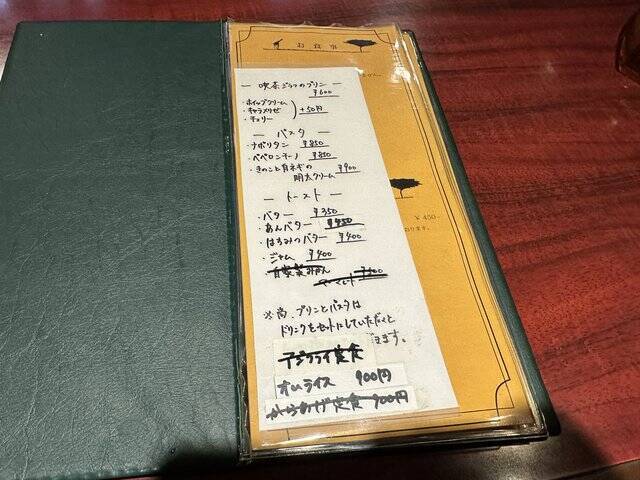 お食事
― 喫茶ジラフのプリン ―
¥600
・ホイップクリーム
・キャラメリゼ
・チェリー
+50円
― パスタ ―
・ナポリタン ¥850
・ペペロンチーノ ¥850
・きのこと青ネギの
明太クリーム ¥900
― トースト ―
・バター ¥350
・あんバター ¥450
・はちみつバター ¥400
・ジャム ¥400
自家製みかん
¥400
※尚、プリンとパスタは
ドリンクとセットにしていただくと
できます。
アジフライ定食
オムライス 900円
からあげ定食 900円
¥450-
おります。